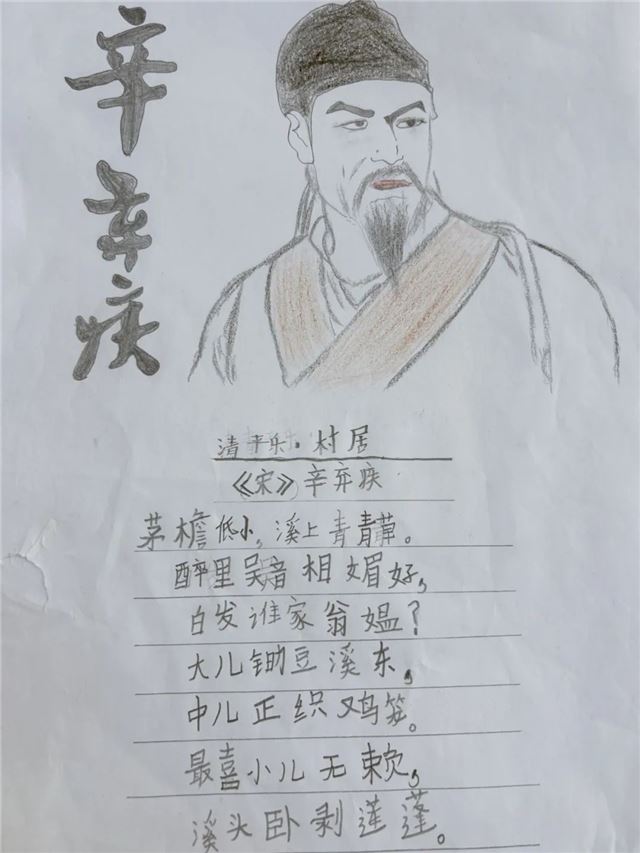 辛弃疾
清平乐·村居
《宋》辛弃疾
茅檐低小,溪上青青草。
醉里吴音相媚好,
白发谁家翁媪?
大儿锄豆溪东,
中儿正织鸡笼。
最喜小儿无赖,
溪头卧剥莲蓬。